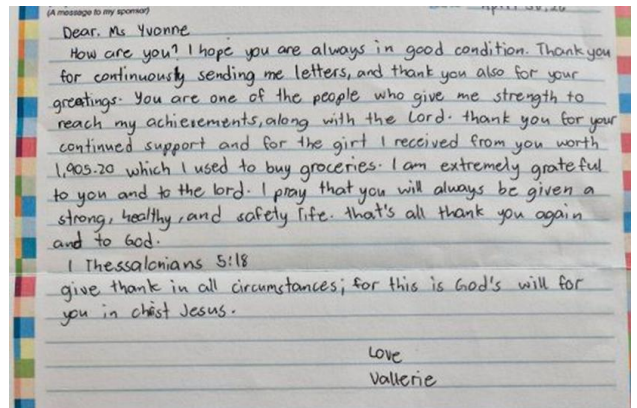 (A message to my sponsor)
Dear. Ms Yvonne
How are you? I hope you are always in good condition. Thank you
for continuously sending me letters, and thank you also for your
greetings. You are one of the people who give me strength to
reach my achievements, along with the Lord. thank you for your
continued support and for the girt I received from you worth
1,905.20 which I used to buy groceries. I am extremely grateful
to you and to the lord. I pray that you will always be given a
strong, healthy, and safety life. that's all thank you again
and to God.
1 Thessalonians 5:18
give thank in all circumstances; for this is God's will for
you in christ Jesus.
Love
Vallerie